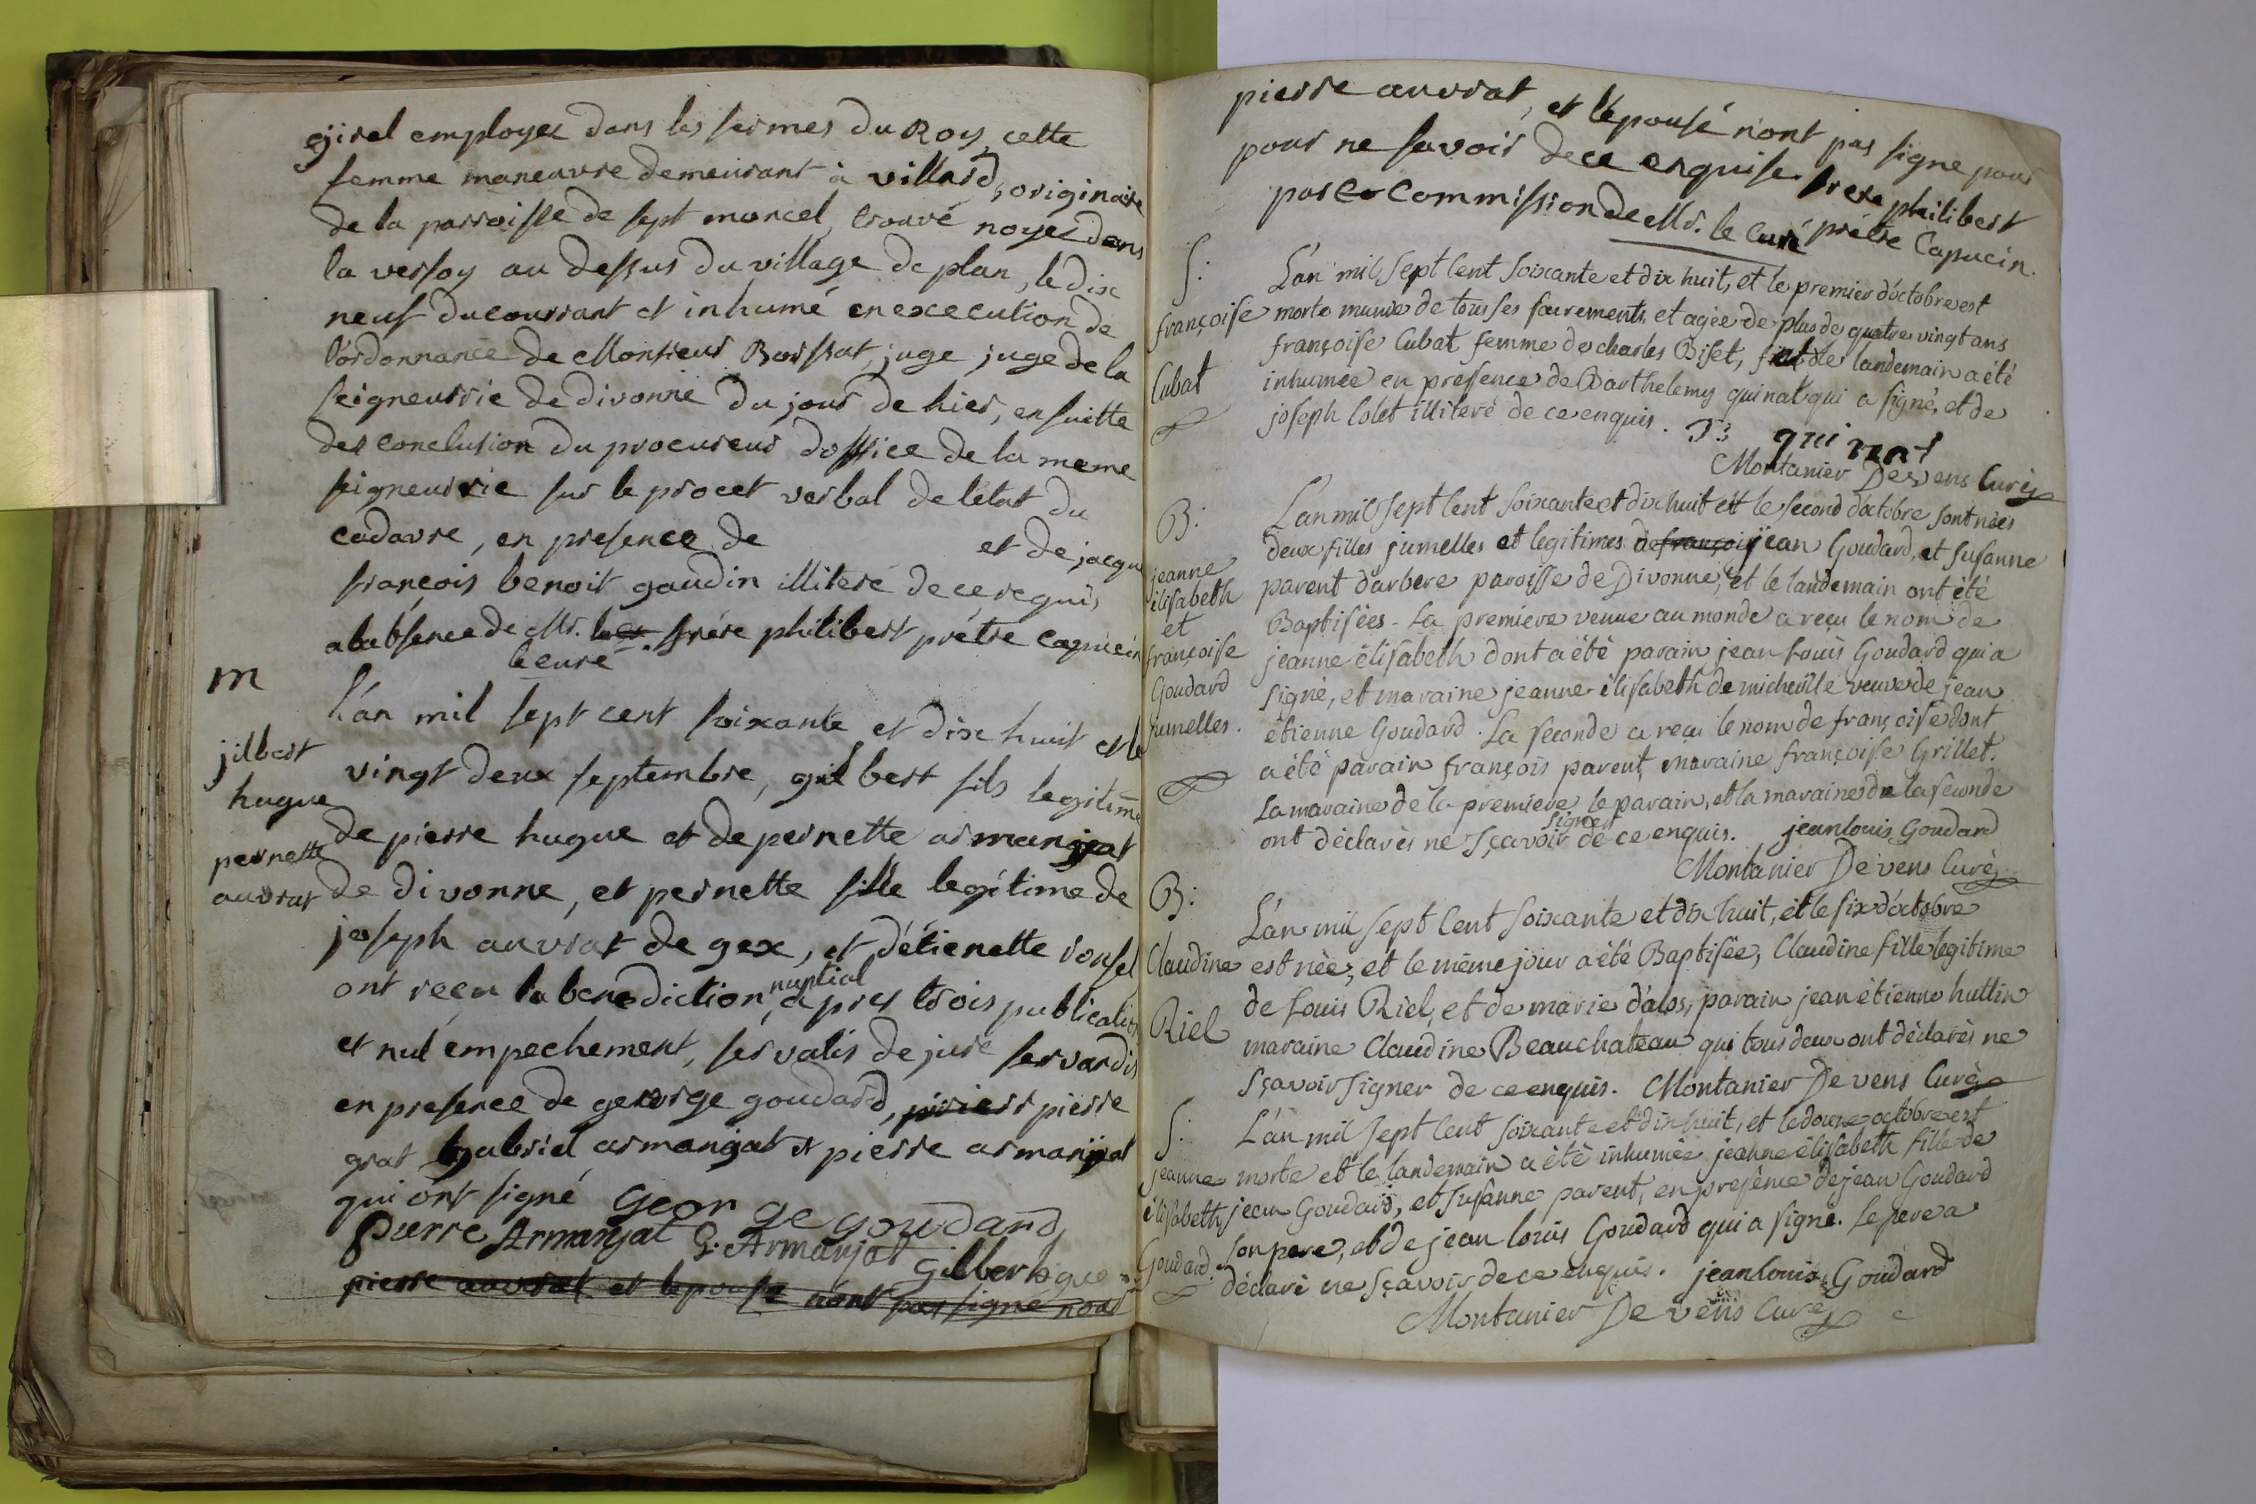 girel employez dans les fermes du Roy, cette
femme maneuvre demeurant à villard, originaire
de la parroisse de sept moncel, trouvé noyez dans
la versoy au dessus du village de plan, le dix
neuf du courrant et inhumé en excecution de
l'ordonnance de Monsieur Bossat, juge juge de la
seigneurrie de divonne du jour de hier, en suitte
des conclusion du procureur d'office de la meme
seigneurrie sur le procet verbal de letat du
cadavre, en presence de et de jacque
francois benoit gaudin illiteré de ce requis
a labsence de Mr. frére philibert prétre capucin
le curé
m
jilbert
hugue
pernette
auvrat
l'an mil sept cent soixante et dixe huit et le
vingt deux septembre, gilbert fils legitime
de pierre hugue et de pernette armanjat
de divonne, et pernette fille legitime de
joseph auvrat de gex, et d'étienette
ont reçu la benediction nuptial, apres trois publications
et nul empechement, servatis de jure servandis
en presence de george goudard, pierre
grat gabriel armangat et pierre armanjat
qui ont signé george goudard
pierre Armanjat G: Armanjat
Gilbert hgue
pierre auvrat et lepouse nont pas signé pour
pierre auvrat, et l'épousé n'ont pas signe pour
pour ne savoir de ce enquise. frere philibert
par commission de Mr. le Curé prétre Capucin.
S:
françoise
Cubat
L'an mil sept cent soixante et dix huit, et le premier d'octobre est
morte munie de tous ses sacrements, et agée de plus de quatre vingt ans
françoise Cubat femme de charles Biset, et le landemain a été
inhumée en présence de Barthelemy quinat qui a signé, et de
joseph Colet illiteré de ce enquis. B quinat
Montanier Devens Curé
B:
jeanne
élisabeth
et
françoise
Goudard
jumelles.
L'an mil sept cent soixante et dix huit et le second d'octobre sont nées
deux filles jumelles et legitimes de françois jean Goudard, et susanne
parent d'arbere paroisse de Divonne, et le landemain ont été
Baptisées. La premiere venue au monde a reçu le nom de
jeanne élisabeth dont a été parain jean Louis Goudard qui a
signé, et maraine jeanne élisabeth de micheille veuve de jean
étienne Goudard. La seconde a reçu le nom de françoise dont
a été parain françois parent, maraine françoise Grillet.
La maraine de la premiere, le parain, et la maraine de la seconde
ont déclarés ne sçavoir signer de ce enquis. jean louis Goudard
Montanier Devens Curé
B:
Claudine
Riel
L'an mil sept cent soixante et dix huit, et le six d'octobre
est née, et le même jour a été Baptisée, Claudine fille legitime
de Louis Riel, et de marie d'alos, parain jean étienne huttin
maraine Claudine Beauchateau qui tous deux ont déclarés ne
sçavoir signer de ce enquis. Montanier Devens Curé
S:
jeanne
élisabeth
Goudard.
L'an mil sept cent soixante et dix huit, et le douze octobre est
morte et le landemain a été inhumée jeanne élisabeth fille de
jean Goudard, et susanne parent, en présence de jean Goudard
son pere, et de jean louis Goudard qui a signé. Le pere a
déclaré ne sçavoir de ce enquis. jean louis Goudard
Montanier Devens Curé